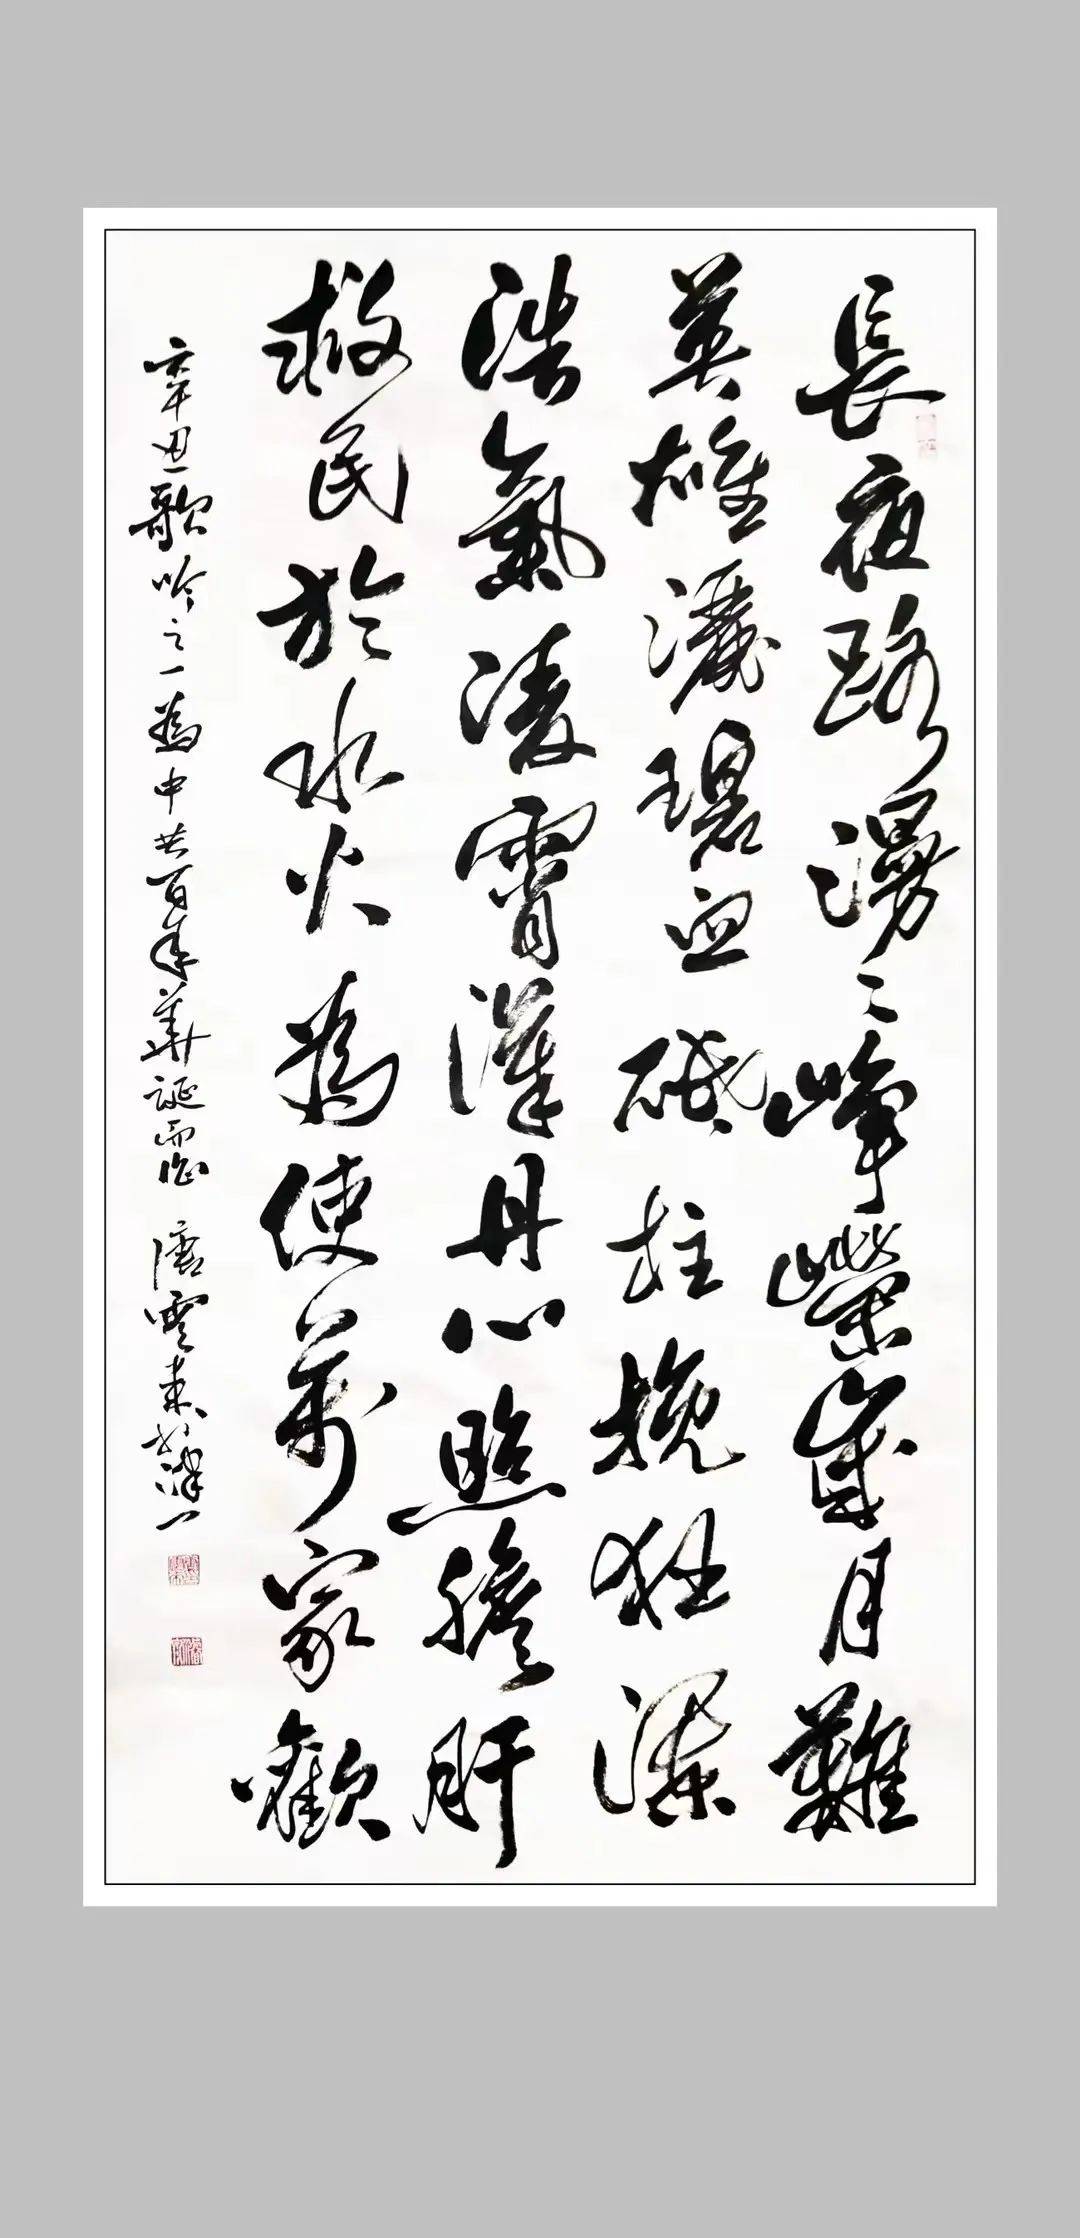 長夜路漫々崢嶸歲月難
英雄灑碧血砥柱挽狂瀾
浩氣凌霄漢丹心照膽肝
救民於水火為使萬家歡
辛丑歌吟之一為中共百年華誕而作 唐雲來於津